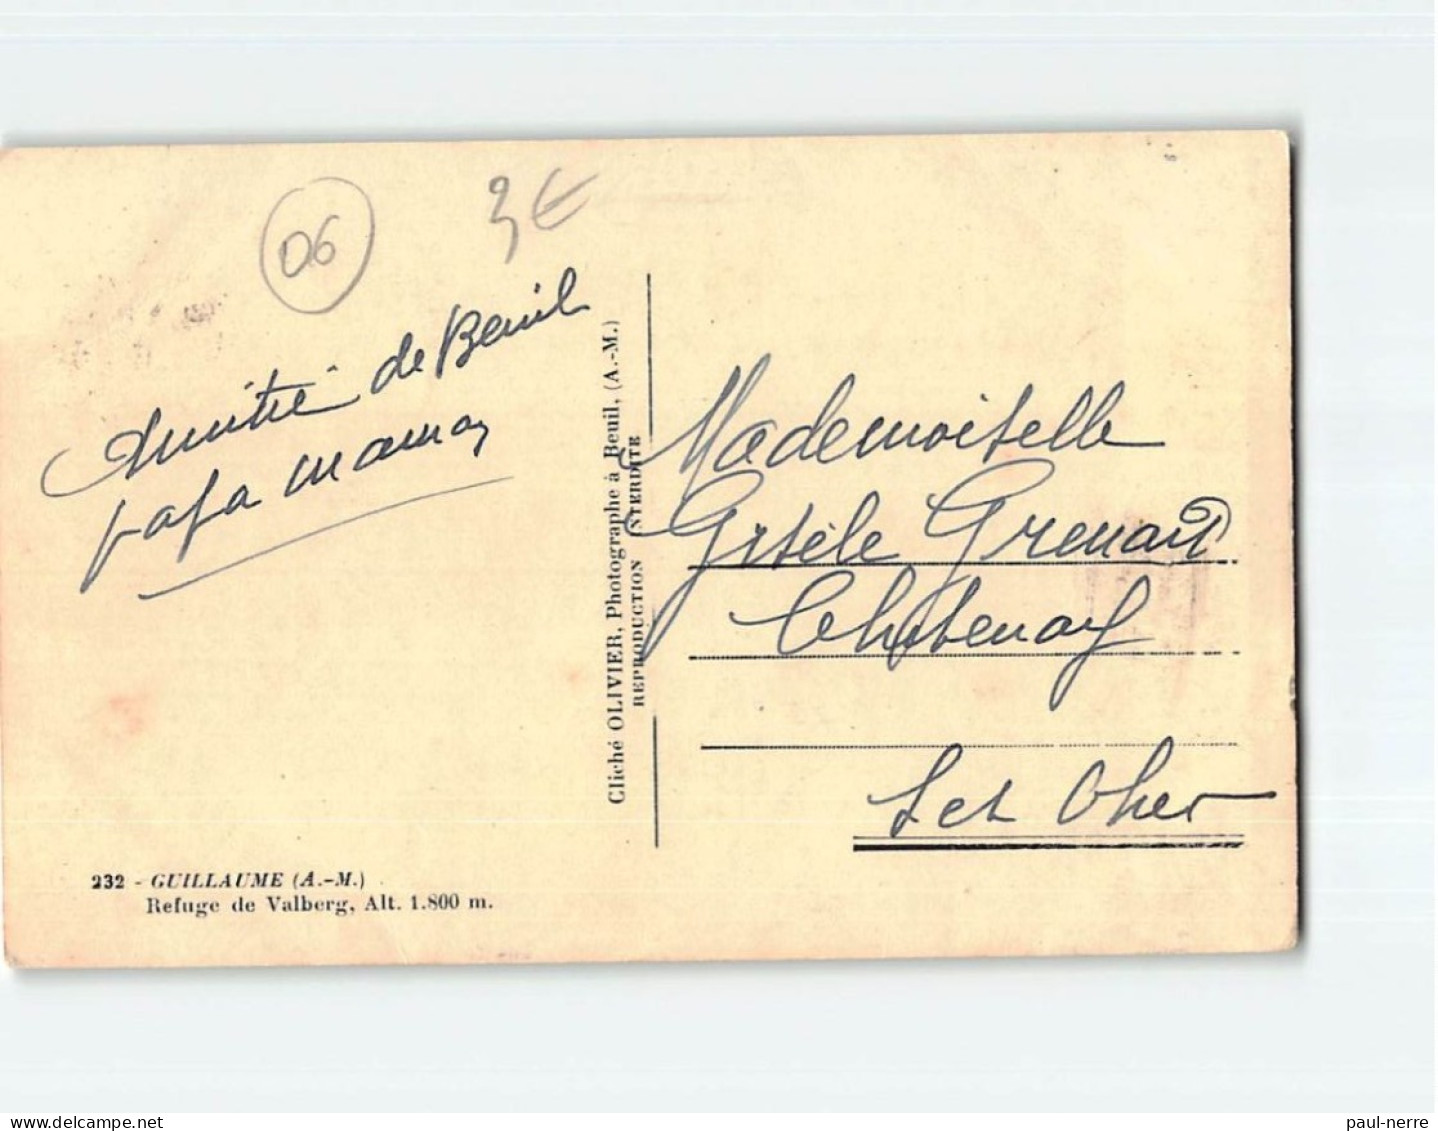 06
3€
Amitié de Beuil
papa maman
Cliché OLIVIER, Photographe à Beuil, (A.-M.)
REPRODUCTION INTERDITE
Mademoiselle
Gisèle Grenait
Chatenay
Set Cher
232 - GUILLAUME (A.-M.)
Refuge de Valberg, Alt. 1.800 m.
delcampe.net
paul-nerre